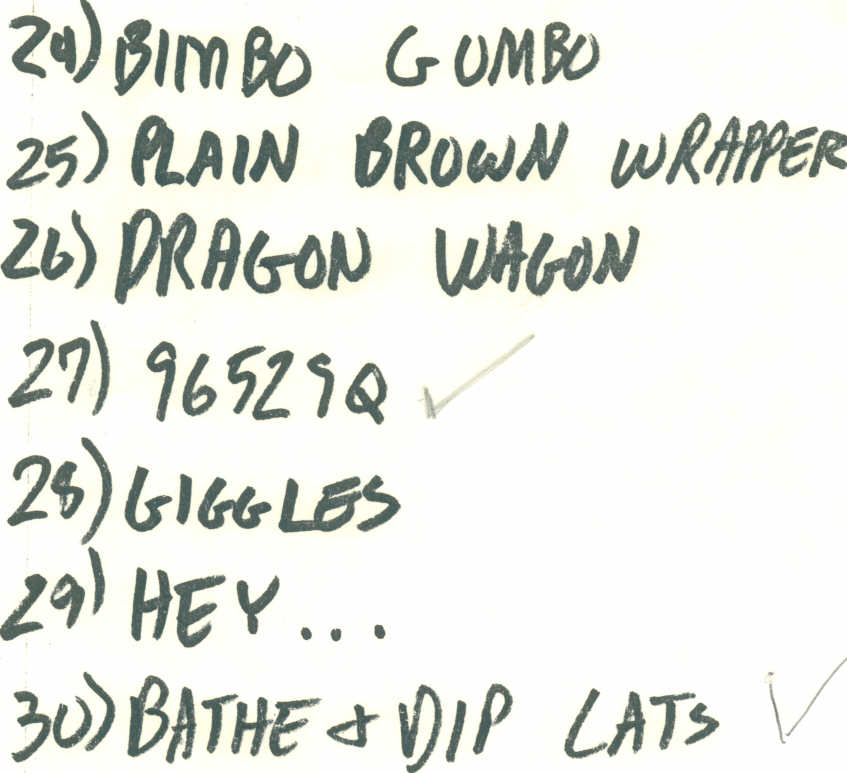 24) BIMBO GUMBO
25) PLAIN BROWN WRAPPER
26) DRAGON WAGON
27) 96529Q ✓
28) GIGGLES
29) HEY...
30) BATHE & DIP CATS ✓